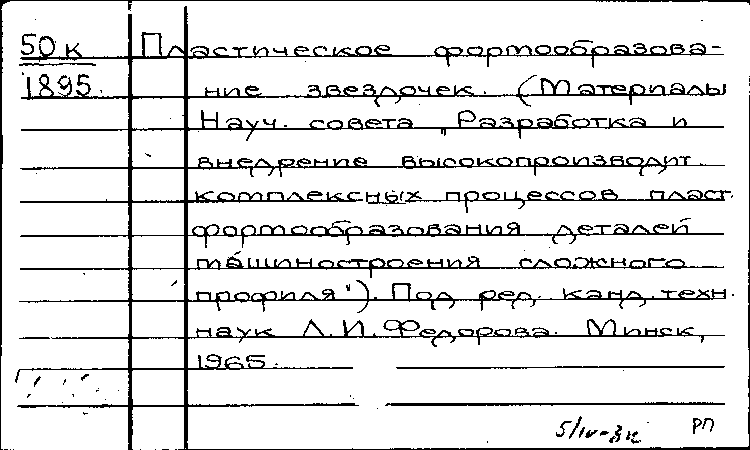 50к Пластическое формообразова-
1895. ние звездочек. (Материалы
Науч. совета „Разработка и
внедрение высокопроизводит.
комплексных процессов пласт.
формообразования деталей
машиностроения сложного
профиля"). Под ред. канд. техн.
наук Л.И.Федорова. Минск,
1965.
РП